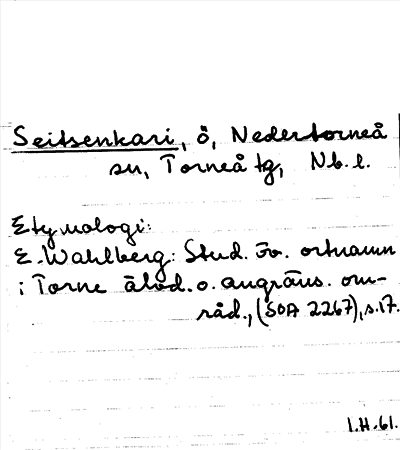 Seitsenkari, ö, Nedertorneå
sn, Torneå tg, Nb. l.
Etymologi:
E. Wahlberg: Stud. öv. ortnamn
i Torne älvd. o. angräns. om-
råd., (SOA 2267), s. 17.
I.H. 61.